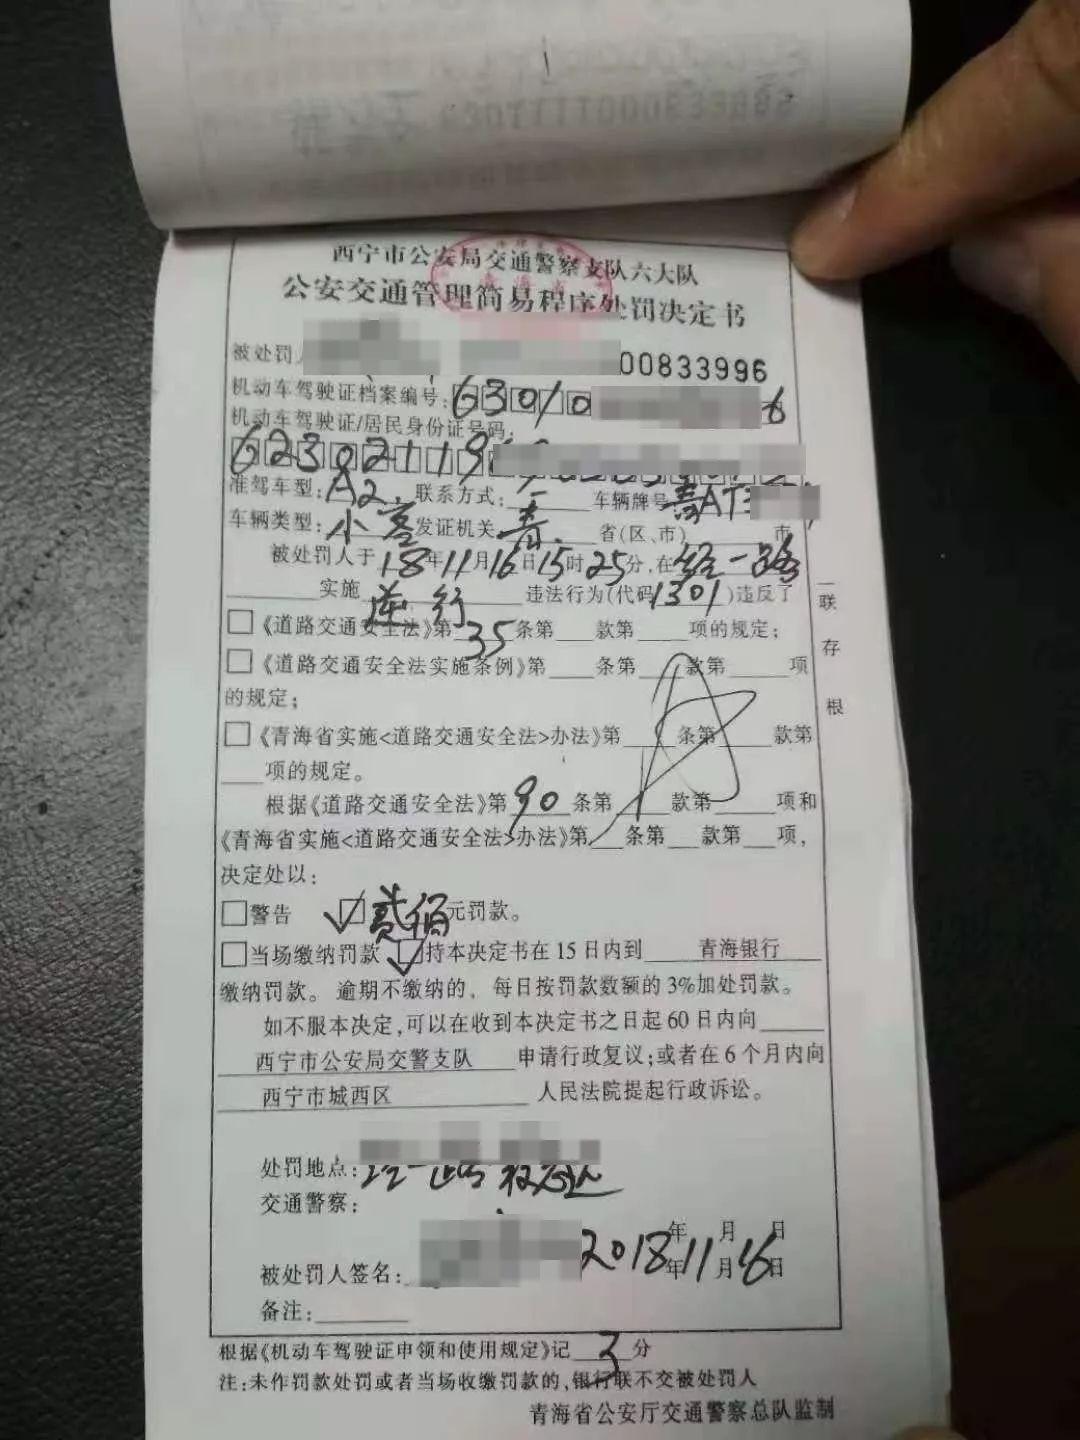 西宁市公安局交通警察支队六大队
公安交通管理简易程序处罚决定书
被处罚人 00833996
机动车驾驶证档案编号：63010 6
机动车驾驶证/居民身份证号码：
62302119
准驾车型：A2. 联系方式： 车辆牌号 青AT
车辆类型：小客 发证机关 青 省(区、市) 市
被处罚人于 18年11月16日15时25分,在 经一路
实施 逆行 违法行为(代码1301)违反了
□《道路交通安全法》第35条第 款第 项的规定；
□《道路交通安全法实施条例》第 条第 款第 项
的规定；
□《青海省实施<道路交通安全法>办法》第 条第 款第
项的规定。
根据《道路交通安全法》第90条第 款第 项和
《青海省实施<道路交通安全法>办法》第 条第 款第 项，
决定处以：
□警告 ☑贰佰元罚款。
□当场缴纳罚款 ☑持本决定书在15日内到 青海银行
缴纳罚款。逾期不缴纳的，每日按罚款数额的3%加处罚款。
如不服本决定,可以在收到本决定书之日起60日内向
西宁市公安局交警支队 申请行政复议；或者在6个月内向
西宁市城西区 人民法院提起行政诉讼。
处罚地点：经一路
交通警察：
年 月 日
被处罚人签名： 2018年11月16日
备注：
根据《机动车驾驶证申领和使用规定》记 3 分
注：未作罚款处罚或者当场收缴罚款的,银行联不交被处罚人
青海省公安厅交通警察总队监制
一联存根